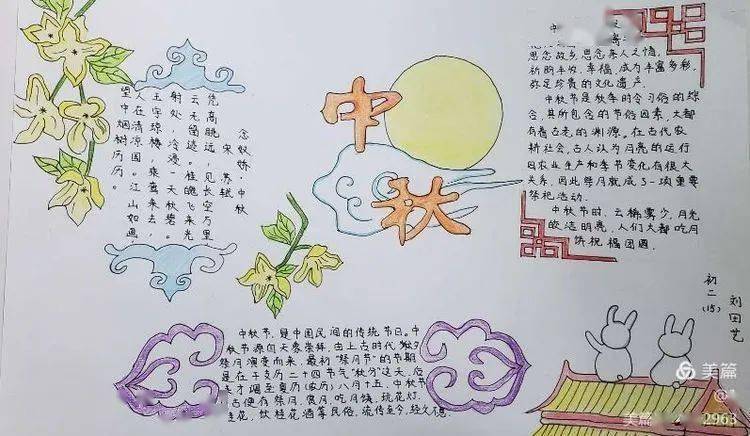 中秋
念奴娇·中秋
宋·苏轼
凭高眺远，见长空万里
云无留迹。桂魄飞来光
射处，冷浸一天秋碧。
玉宇琼楼，乘鸾来去，
人在清凉国。江山如画，
望中烟树历历。
思念故乡，思念亲人之情，
祈盼丰收、幸福，成为丰富多彩，
弥足珍贵的文化遗产。
中秋节是秋季时令习俗的综
合，其所包含的节俗因素，大都
有着古老的渊源。在古代农
耕社会，古人认为月亮的运行
同农业生产和季节变化有很大
关系，因此祭月就成了一项重要
祭祀活动。
中秋节时，云稀雾少，月光
皎洁明亮，人们大都吃月
饼祝福团圆
初二(15)
刘田艺
中秋节，是中国民间的传统节日。中
秋节源自天象崇拜，由上古时代秋夕
祭月演变而来。最初“祭月节”的节期
是在干支历二十四节气“秋分”这天，后
来才调至夏历(农历)八月十五，中秋节
自古便有祭月、赏月、吃月饼、玩花灯、
赏桂花、饮桂花酒等民俗，流传至今，经久不息。
美篇
美篇
2963